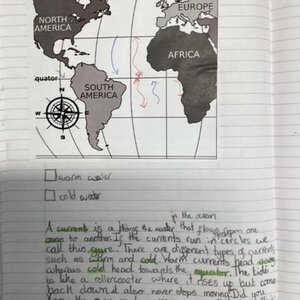 NORTH
AMERICA
EUROPE
AFRICA
quator
SOUTH
AMERICA
N
W
E
S
warm water
cold water
in the ocean
A current is a the water that flows from one
to another. If the currents run in circles we
call this gyre. There are different types of currents
such as warm and cold. Warm currents head
whereas cold head towards the equator. The tide
is like a rollercoaster where it rises up but come
back down. It also never stops moving. Did you